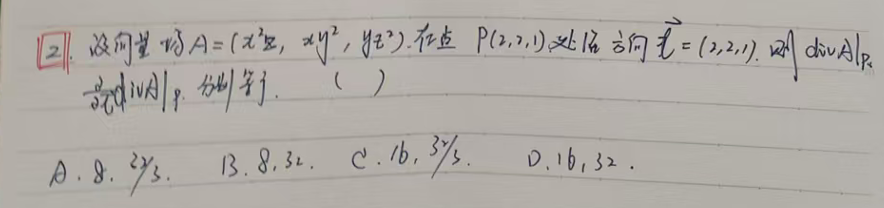 2. 设向量场A=(x²z, xy², yz²).在点 P(2,2,1)处沿方向 l⃗=(2,2,1). 则 divA|P.
∂/∂l divA|P. 分别等于. ( )
A. 8. 22/3. B. 8, 32. C. 16, 32/3. D. 16, 32.